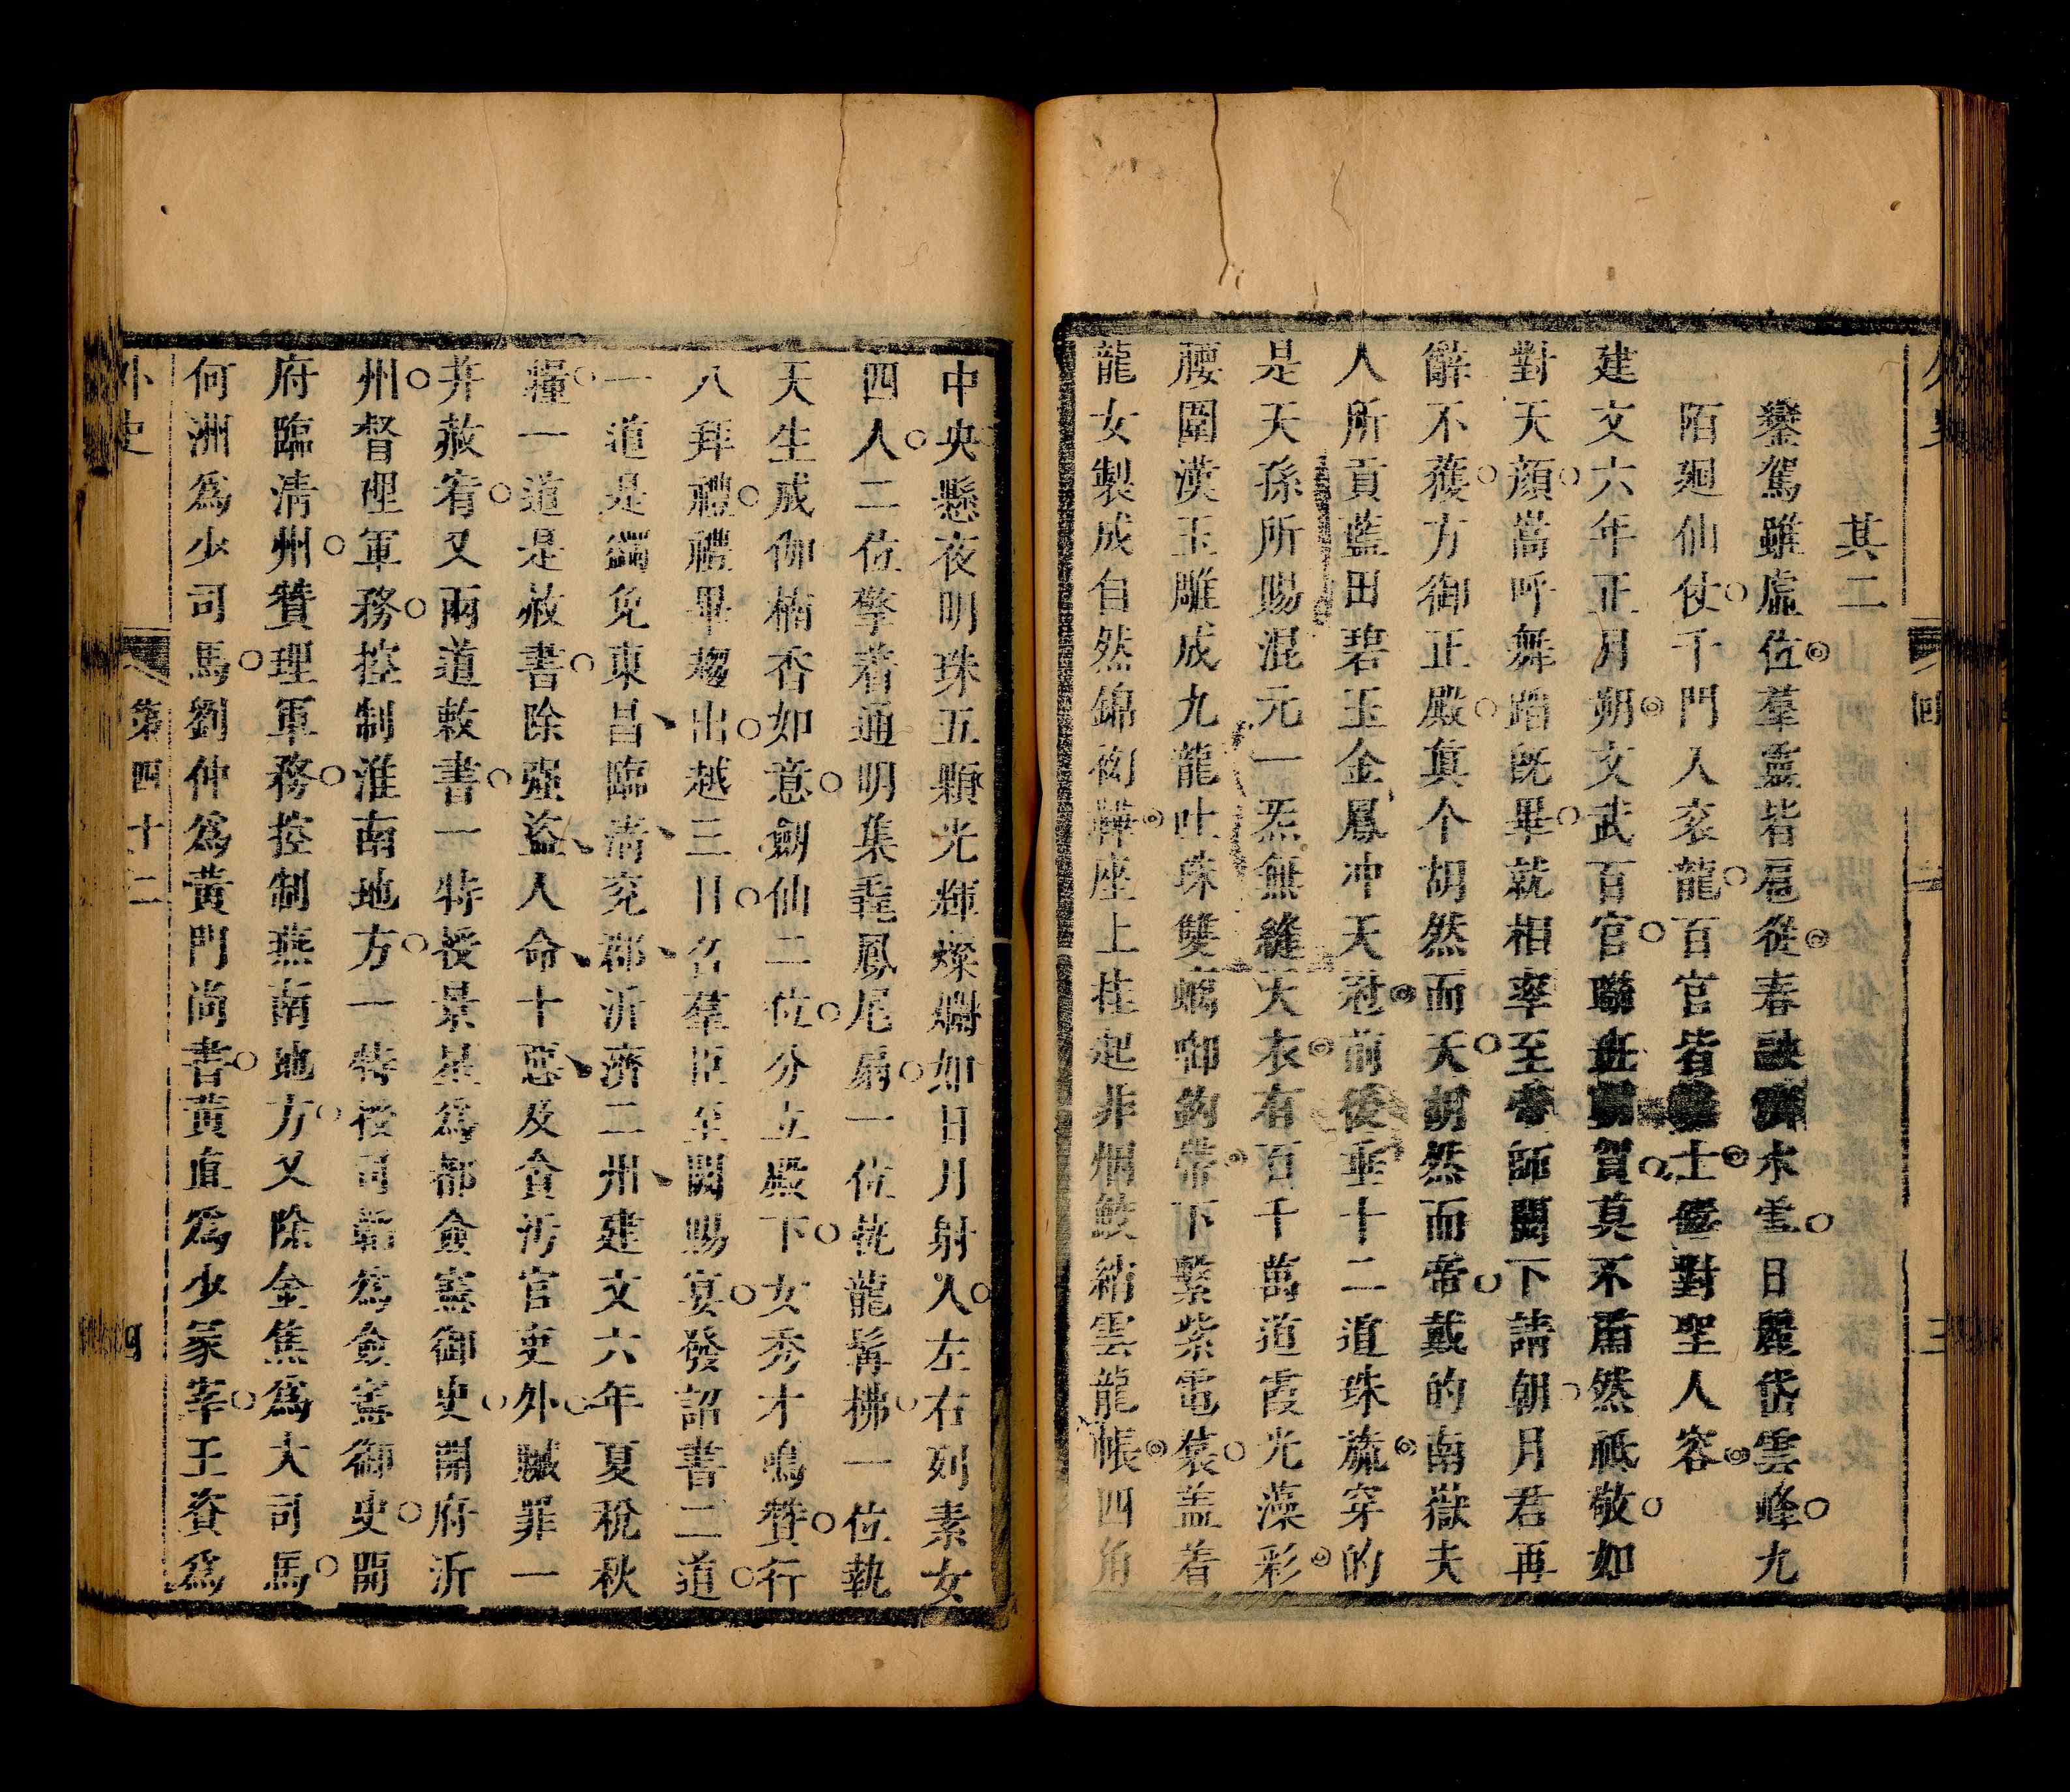 其二
鑾駕雖虛位羣靈皆扈從春融泲水雪日麗岱雲峰九
陌廻仙仗千門入袞龍百官皆士儘對聖人容
建文六年正月朔文武百官聯班朝賀莫不肅然祗敬如
對天顔嵩呼舞蹈既畢就相率至帝師闕下請朝月君再
辭不獲方御正殿真个胡然而天胡然而帝戴的南嶽夫
人所貢藍田碧玉金鳳冲天冠前後垂十二道珠旒穿的
是天孫所賜混元一炁無縫天衣有百千萬道霞光藻彩
腰圍漢玉雕成九龍吐珠雙螭啣鈎帶下繫紫電裠盖着
龍女製成自然錦襪座上挂起非烟鮫綃雲龍帳四角
中央懸夜明珠五顆光輝燦爛如日月射人左右列素女
四人二位擎着通明集毳鳳尾扇一位執龍髯拂一位執
天生成伽楠香如意劍仙二位分立殿下女秀才鳴贊行
八拜禮禮畢趨出越三日名羣臣至闕賜宴發詔書二道
一道是蠲免東昌臨清兖郡沂濟二州建文六年夏稅秋
糧一道是赦書除强盗人命十惡及貪汚官吏外贓罪一
并赦宥又兩道敕書一特授景星爲都僉憲御史開府沂
州督理軍務控制淮南地方一特授司韜爲僉憲御史開
府臨清州贊理軍務控制燕南地方又除金焦爲大司馬
何洲爲少司馬劉仲爲黃門尚書黃直爲少冢宰王資爲
外史
第四十二
四